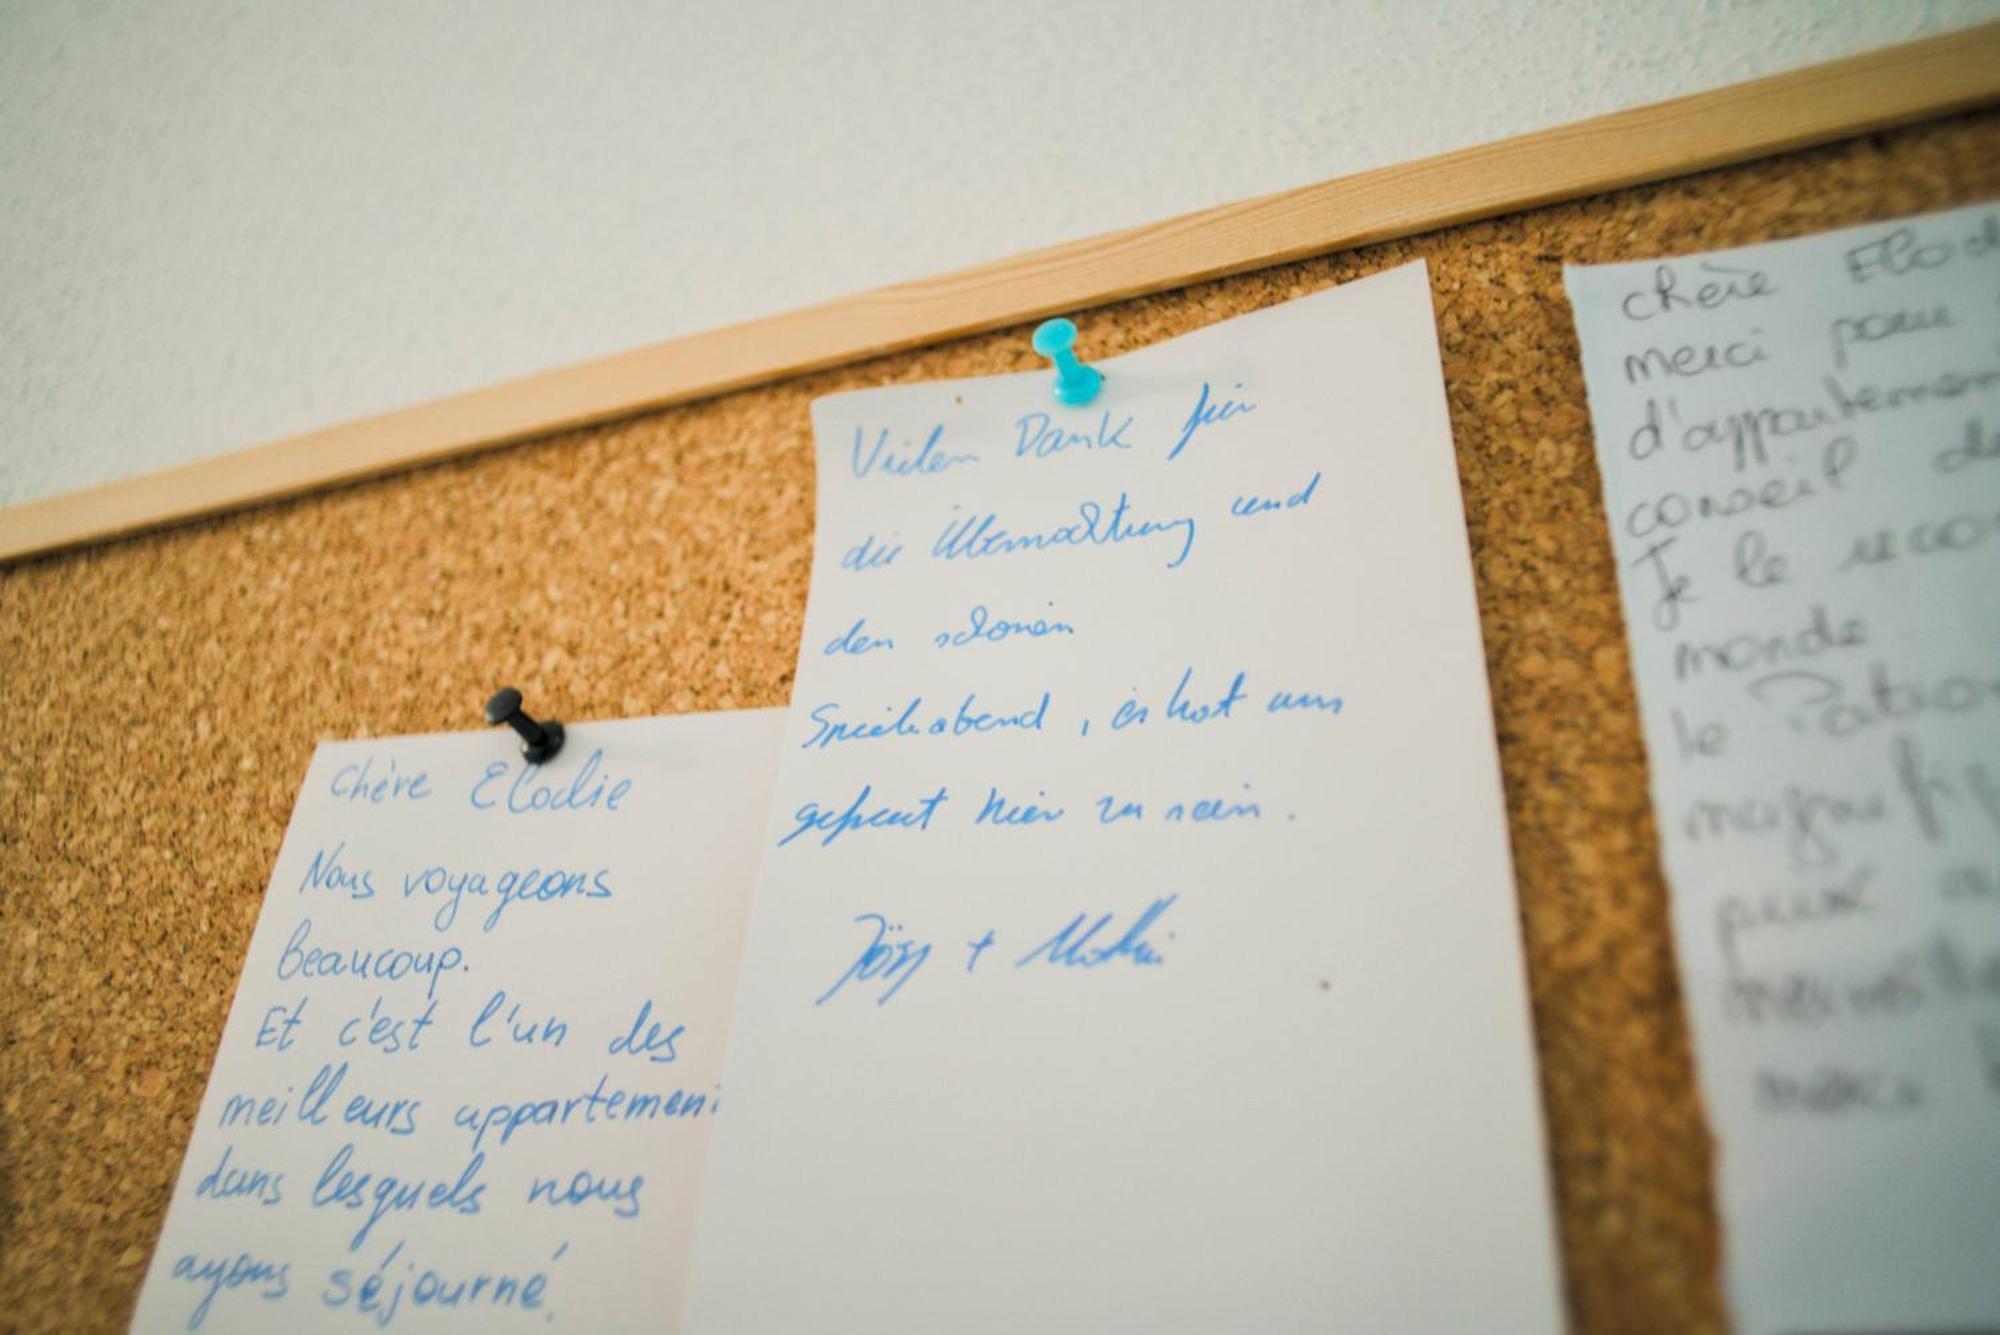 Chère Elodie
Nous voyageons
beaucoup.
Et c'est l'un des
meilleurs appartemen
dans lesquels nous
ayons séjourné.
Vielen Dank für
die Übernachtung und
den schönen
Spieleabend, es hat uns
gefreut hier zu sein.
Jörg +
chère Elod
merci pour
d'appartement
conseil de
Je le recom
monde
le Patron
magnifi
merci